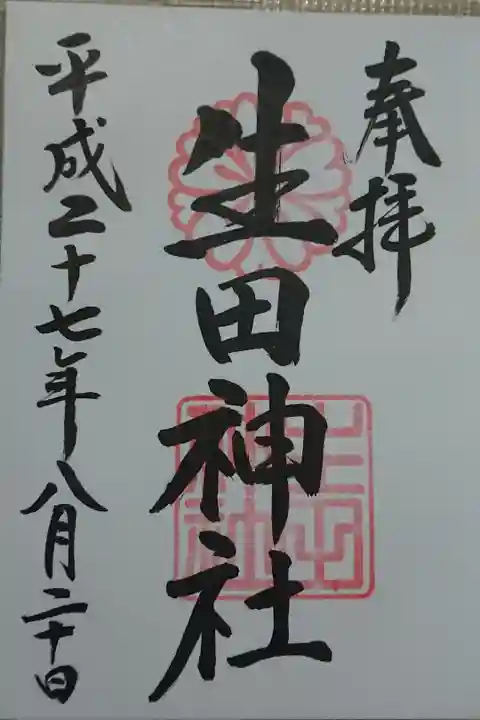 奉拝
生田神社
平成二十七年八月二十日